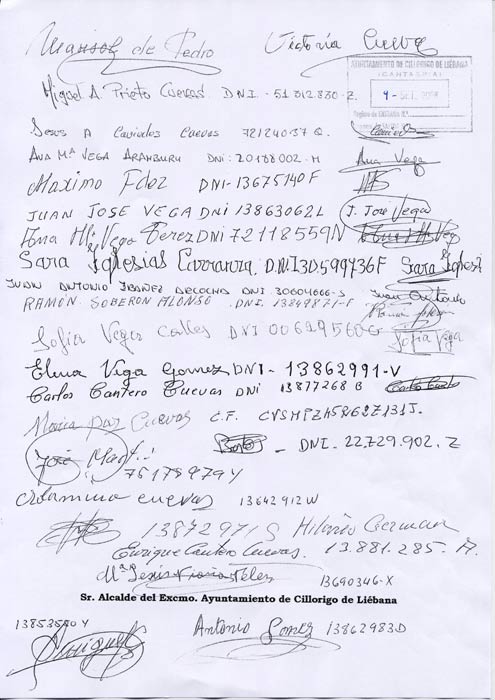 Marisol de Pedro Victoria Cueva
AYUNTAMIENTO DE CILLORIGO DE LIÉBANA
(CANTABRIA)
Miguel A. Prieto Cuevas DNI - 51312830-Z
Jesus A Caviedes Cuevas 72124037Q
Ana Mª Vega Aramburu DNI: 20188002-H Ana Vega
Maximo Fdez DNI-13675140F
JUAN JOSE VEGA DNI 13863062L J. José Vega
Ana Mª Vega Perez DNI 72118559N
Sara Iglesias Carranza D.N.I 30.599436F Sara Iglesi
JUAN ANTONIO IBAÑEZ DNI 30604666-S Juan Antonio
RAMÓN SOBERÓN ALONSO DNI. 13849871-F
Sofia Vega DNI 00629560G Sofía Vega
Elena Vega Gomez DNI - 13862991-V
Carlos Cantero Cuevas DNI 13877268B
Maria paz Cuevas C.F.
DNI. 22.729.902.Z
José
75178979Y
cuevas 13642912W
13872971S Hilario German
Enrique Cantero Cuevas. 13.881.285.
Mª Jesús 13690346-X
Sr. Alcalde del Excmo. Ayuntamiento de Cillorigo de Liébana
Antonio Gomez 13862983D